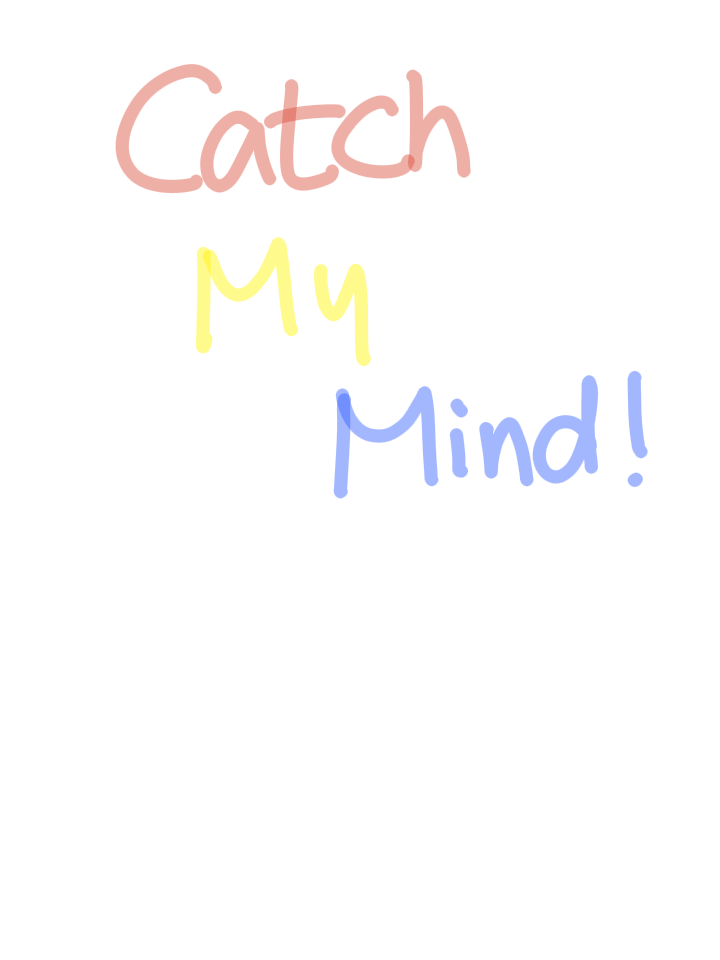 Catch
My
Mind!